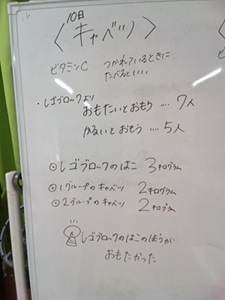 10日
〈キャベツ〉
ビタミンC つかれているときに
たべるといい
・レゴブロックより
おもたいとおもう …. 7人
かるいとおもう …. 5人
⊙レゴブロックのはこ 3キログラム
⊙1グループのキャベツ 2キログラム
⊙2グループのキャベツ 2キログラム
レゴブロックのはこのほうが
おもたかった